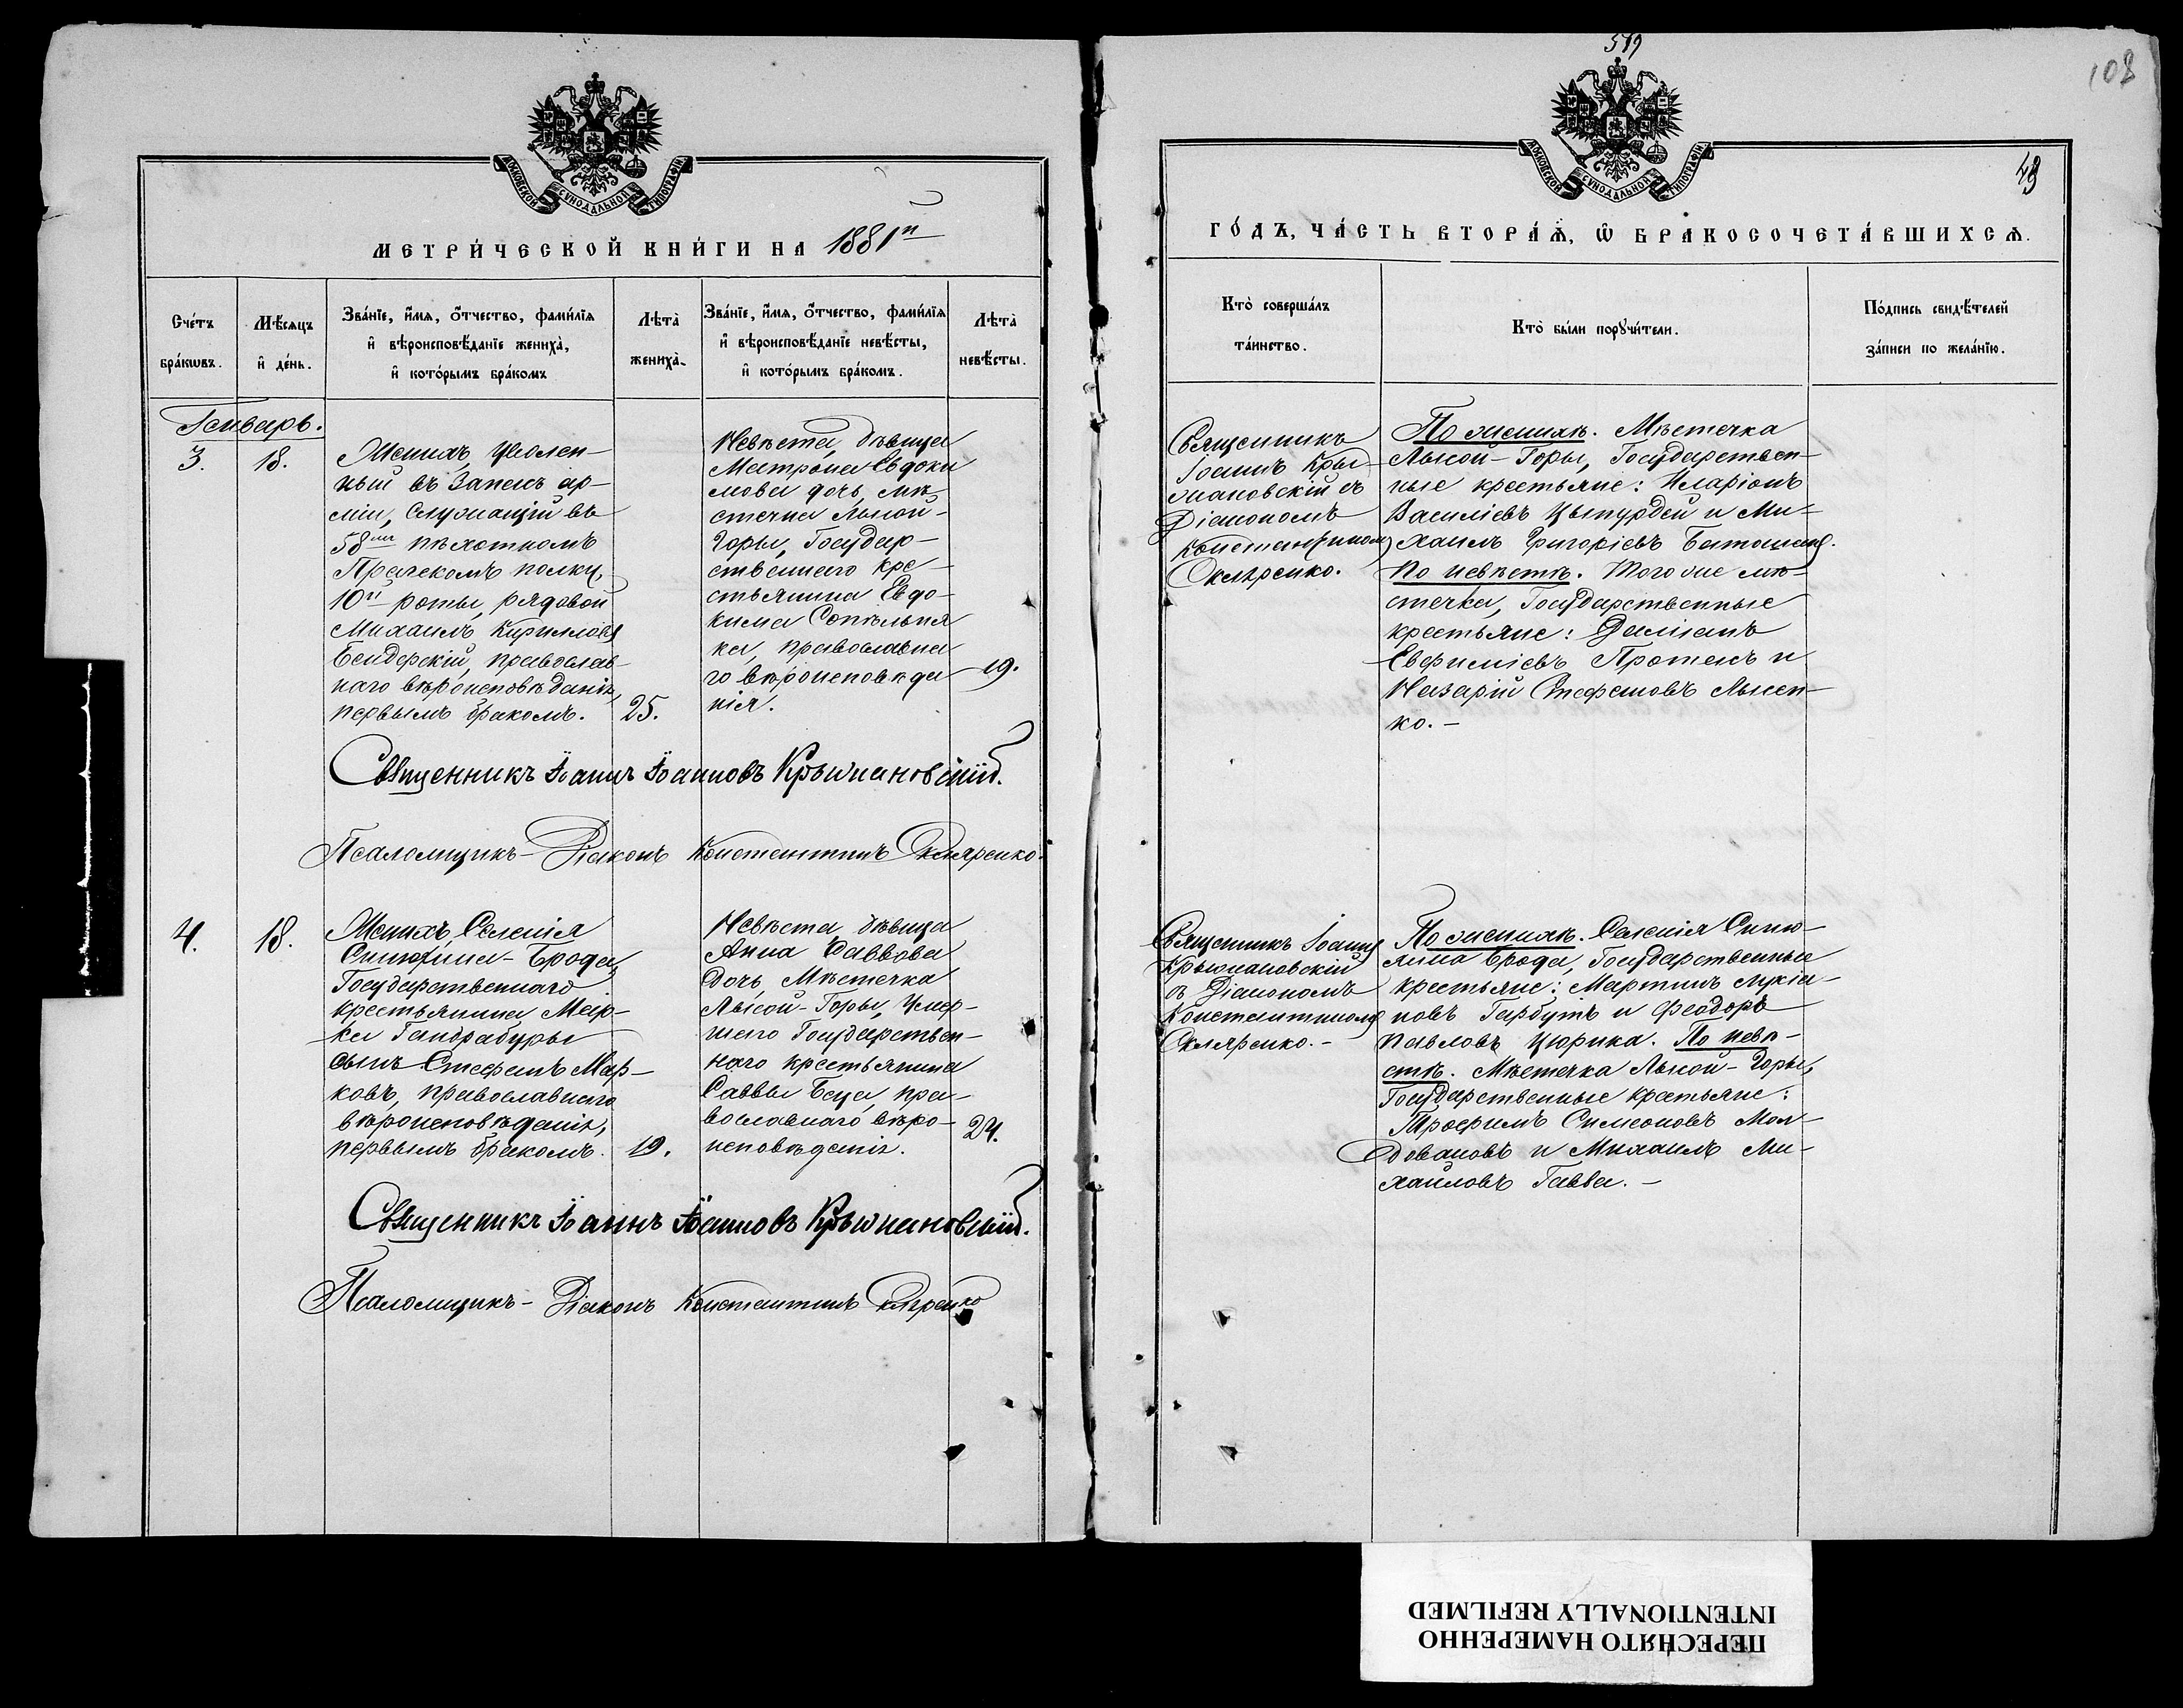 579
108
49
МОСКОВСКОЙ СѴНОДАЛЬНОЙ ТИПОГРАФІИ
МОСКОВСКОЙ СѴНОДАЛЬНОЙ ТИПОГРАФІИ
МЕТРИ́ЧЕСКОЙ КНИ́ГИ НА 1881й
ГО́ДЪ, ЧА́СТЬ ВТОРА́Ѧ, Ѡ БРАКОСОЧЕТА́ВШИХСѦ.
Сче́тъ
бра́кѡвъ.
Мѣ́сяцъ
и҆ де́нь.
Зва́нїе, и҆́мѧ, ѻ҆́тчество, фами́лїѧ
и҆ вѣроисповѣ́данїе жениха̀,
и҆ кото́рымъ бра́комъ
Лѣта̀
жениха̀.
Зва́нїе, и҆́мѧ, ѻ҆́тчество, фами́лїѧ
и҆ вѣроисповѣ́данїе невѣ́сты,
и҆ кото́рымъ бра́комъ.
Лѣта̀
невѣ́сты.
Кто̀ соверша́лъ
та́инство.
Кто̀ бы́ли порꙋчи́тели.
По́дпись свидѣ́телей
за́писи по жела́нїю.
Генварь.
3.
18.
Женихъ, уволен-
ный въ запасъ ар-
міи, служащій въ
58мъ пѣхотномъ
Пражскомъ полку,
10й роты, рядовой
Михаилъ Кирилловъ
Бендерскій, православ-
наго вѣроисповѣданія,
первымъ бракомъ.
25.
Невѣста, дѣвица
Матрона Евдоки
мова дочь, мѣ-
стечка Лысой-
Горы, Государ-
ственнаго кре-
стьянина Евдо-
кима Сопѣльня
ка, православна
го вѣроисповѣда
нія.
19.
Священникъ
Іоаннъ Кры-
жановскій съ
Діакономъ
Константиномъ
Скляренко.
По женихѣ. Мѣстечка
Лысой-Горы, Государствен-
ные крестьяне: Иларіонъ
Василіевъ Цыпурдей и Ми-
хаилъ Григоріевъ
По невѣстѣ. Того же мѣ-
стечка, Государственные
крестьяне: Даміанъ
Евфиміевъ Протасъ и
Назарій Стефановъ Лысен-
ко.-
Священникъ Іоаннъ Іоанновъ Крыжановскій.
Псаломщикъ-Діаконъ Константинъ Скляренко.
4.
18.
Женихъ, Селенія
Синюхина-Брода,
Государственнаго
крестьянина Мар-
ка Гандрабуры
сынъ Стефанъ Мар-
ковъ, православнаго
вѣроисповѣданія,
первымъ бракомъ.
19.
Невѣста, дѣвица
Анна Саввова
дочь, Мѣстечка
Лысой-Горы, умер-
шаго Государствен-
наго крестьянина
Саввы Беца, пра-
вославнаго вѣро-
исповѣданія.
24.
Священникъ Іоаннъ
Крыжановскій
съ Діакономъ
Константиномъ
Скляренко.-
По женихѣ. Селенія Синю-
хина Брода, Государственные
крестьяне: Мартинъ Лукіа-
новъ Гарбузъ и Феодоръ
Павловъ Цюрика. По невѣ-
стѣ. Мѣстечка Лысой-Горы,
Государственные крестьяне:
Трофимъ Симеоновъ Мол-
довановъ и Михаилъ Ми-
хаиловъ Гавва.-
Священникъ Іоаннъ Іоанновъ Крыжановскій.
Псаломщикъ-Діаконъ Константинъ Скляренко
ПЕРЕСНЯТО НАМЕРЕННО
INTENTIONALLY REFILMED